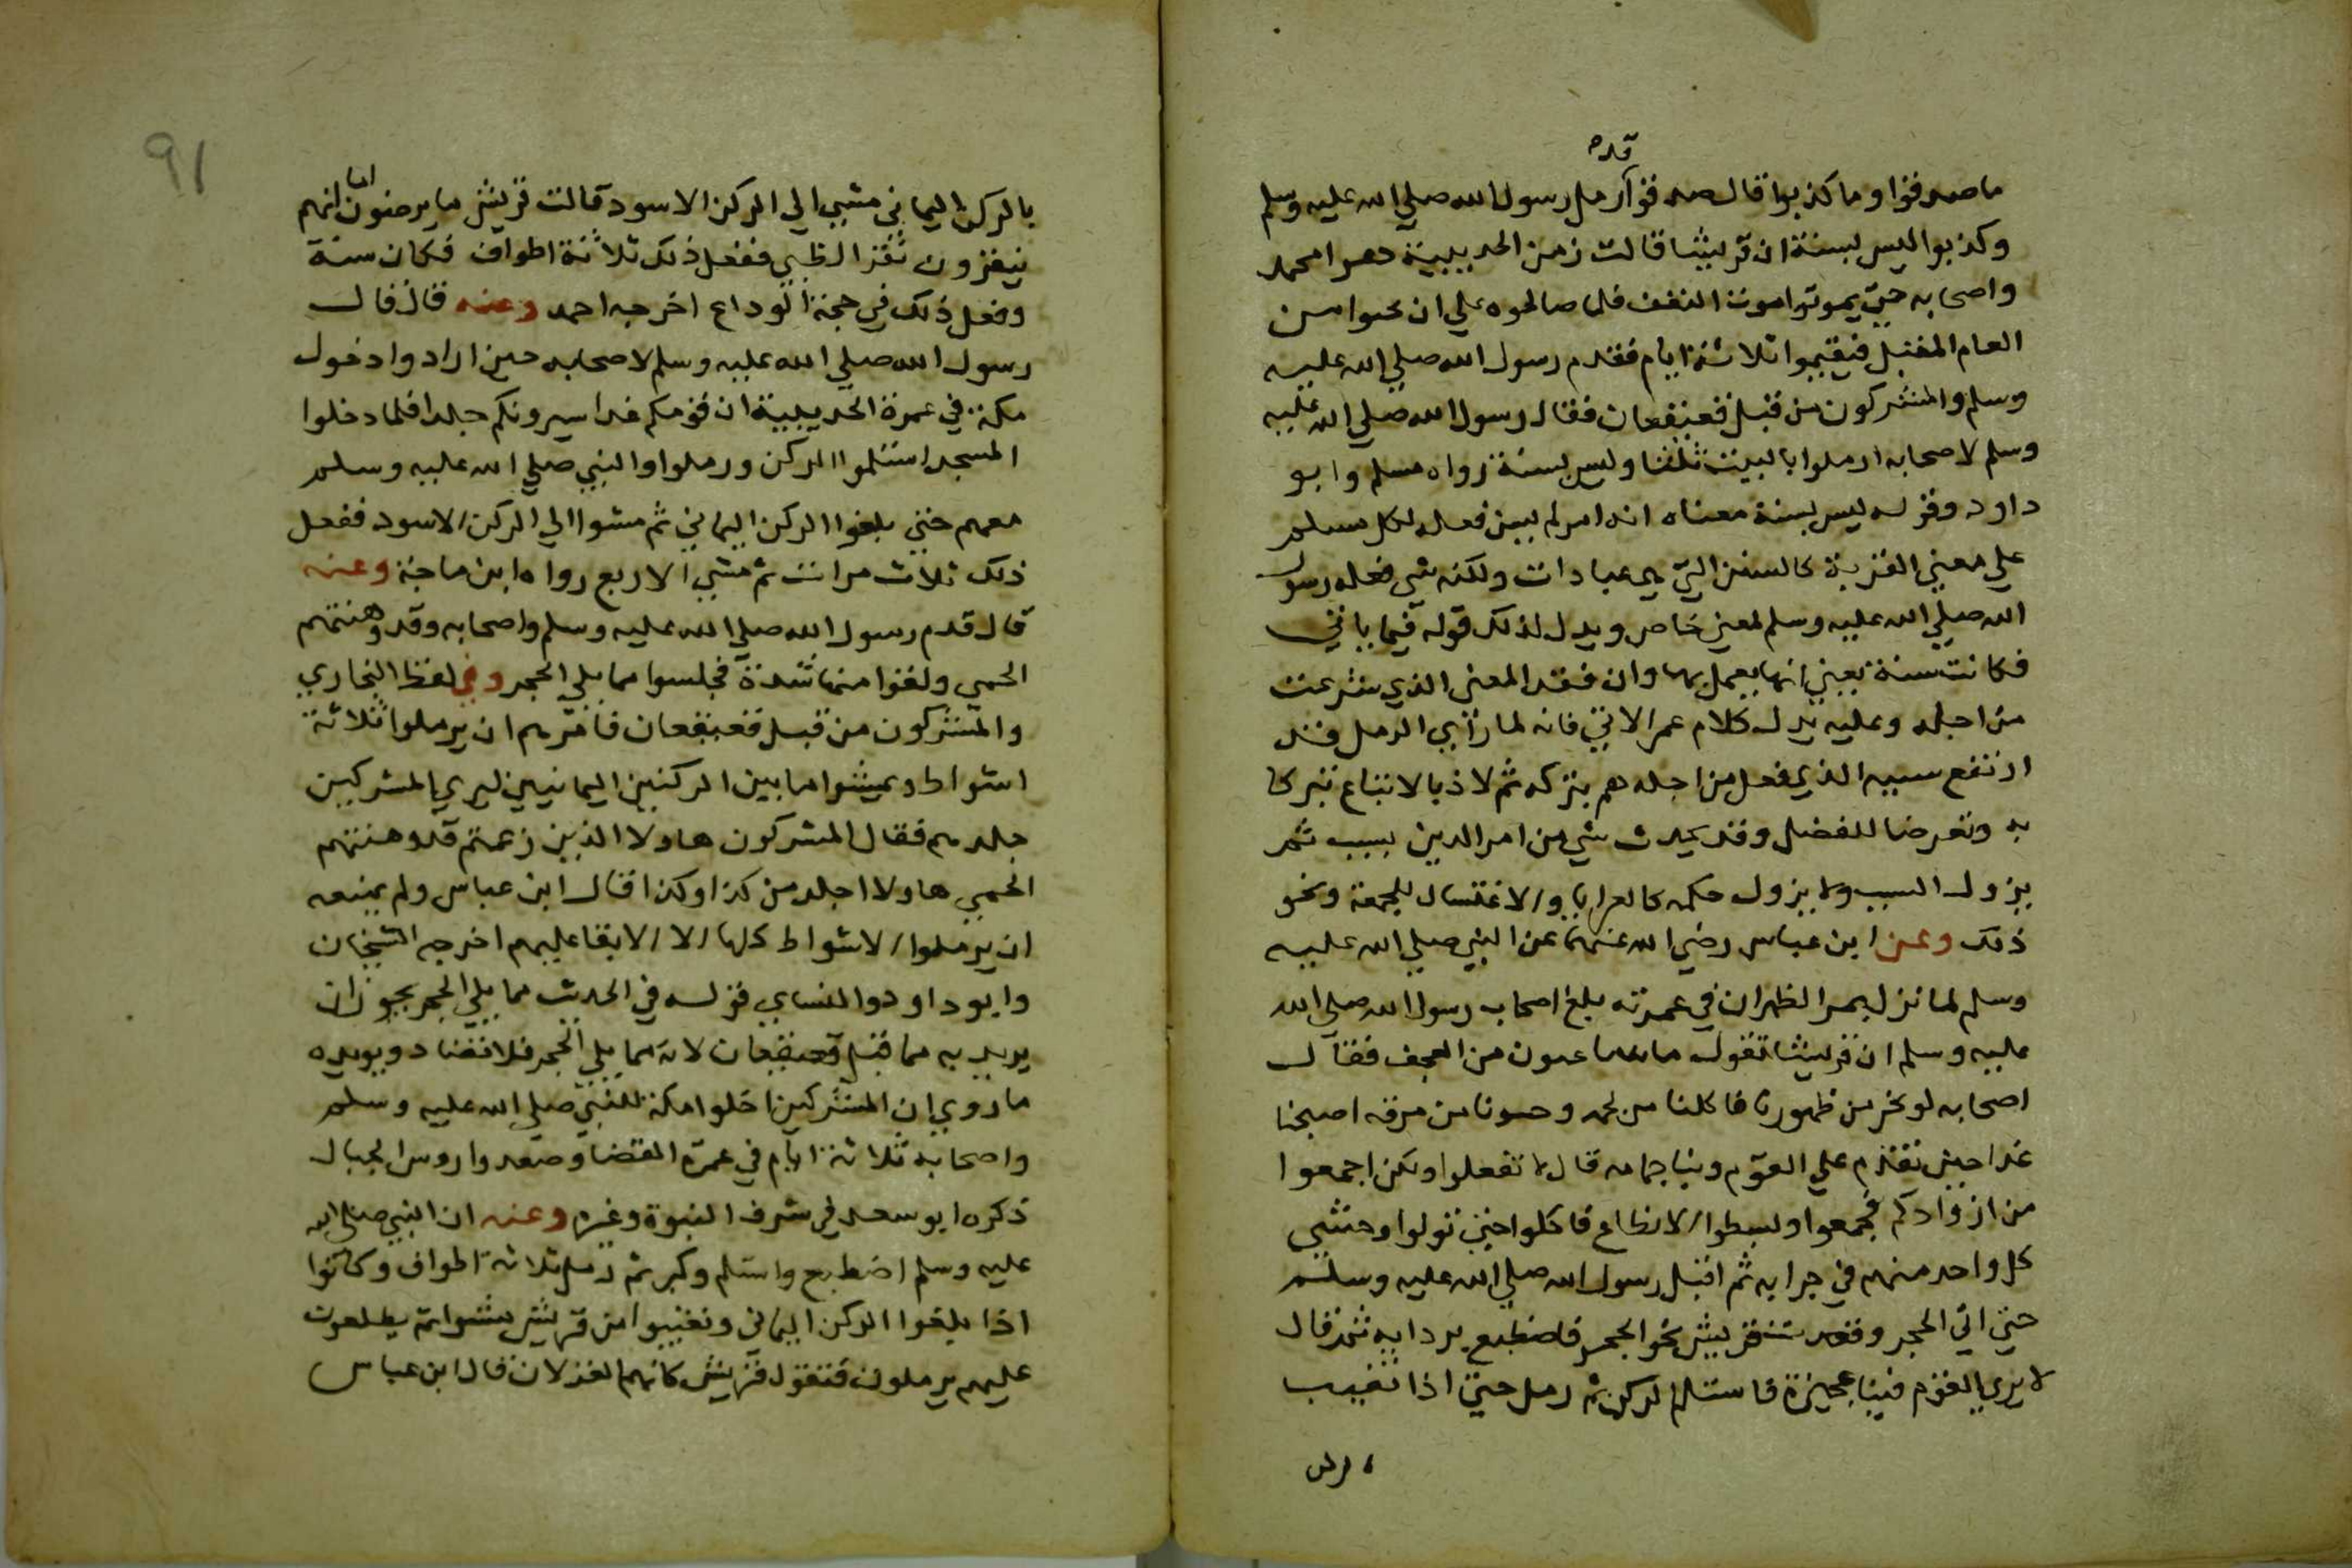 قد
ما صدقوا وما كذبوا قال صدقوا رمل رسول الله صلي الله عليه وسلم
وكذبوا ليس بسنة ان قريشا قالت زمن الحديبية دعوا محمد
واصحابه حتي يموتوا موت النغف فلما صالحوه علي ان يحبوا من
العام المقبل فيقيموا ثلاثة ايام فقدم رسول الله صلي الله عليه
وسلم والمشركون من قبل قعيقعان فقال رسول الله صلي الله عليه
وسلم لاصحابه ارملوا بالبيت ثلثا وليس بسنة رواه مسلم وابو
داود وقوله ليس بسنة معناه انه امر لم يبين فعله لكل مسلم
علي معني القربة كالسنن التي هي عبادات ولكنه شي فعله رسول
الله صلي الله عليه وسلم لمعني خاص ويدل لذلك قوله فيما ياتي
فكانت سنة يعني انها يعمل بها وان فقد المعني الذي شرعت
من اجله وعليه يدل كلام عمر الاتي فانه لما رأي الرمل قد
ارتفع سببه الذي فعل من اجله هم بتركه ثم لاذ بالاتباع تبركا
به وتعرضا للفضل وقد يحدث شي من امر الدين بسبب ثم
يزول السبب ولا يزول حكمه كالعرايا والاغتسال للجمعة ونحو
ذلك وعن ابن عباس رضي الله عنهما عن النبي صلي الله عليه
وسلم لما نزل بمر الظهران في عمرته بلغ اصحاب رسول الله صلي الله
عليه وسلم ان قريشا تقول ما من العجف فقال
اصحابه لو نحر من ظهورنا فاكلنا من لحمه وحسونا من مرقه اصبحنا
غدا حين نقدم علي القوم وبنا جمامه قال لا تفعلوا ولكن اجمعوا
من ازوادكم فجمعوا وبسطوا الانطاع فاكلوا حتي تولوا وحثي
كل واحد منهم في جرابه ثم اقبل رسول الله صلي الله عليه وسلم
حتي اتي الحجر وقعدت قريش نحو الحجر فاضطبع بردايه ثم قال
لا يري القوم فينا غميزة فاستلم الركن ثم رمل حتي اذا تغيب
بالركن
91
بالركن اليماني مشي الي الركن الاسود قالت قريش ما يرضون اما انهم
ينقزون نقز الظبي ففعل ذلك ثلاثة اطواف فكان سنة
وفعل ذلك في حجة الوداع اخرجه احمد وعنه قال قال
رسول الله صلي الله عليه وسلم لاصحابه حين ارادوا دخول
مكة في عمرة الحديبية ان قومكم غدا سيرونكم جلدا فلما دخلوا
المسجد استلموا الركن ورملوا والنبي صلي الله عليه وسلم
معهم حتي بلغوا الركن اليماني ثم مشوا الي الركن الاسود ففعل
ذلك ثلاث مرات ثم مشي الاربع رواه ابن ماجة وعنه
قال قدم رسول الله صلي الله عليه وسلم واصحابه وقد وهنتهم
الحمي ولقوا منها شدة فجلسوا مما يلي الحجر وفي لفظ البخاري
والمشركون من قبل قعيقعان فامرهم ان يرملوا ثلاثة
اشواط ويمشوا ما بين الركنين اليمانيين ليري المشركين
جلدهم فقال المشركون هاولا الذين زعمتم قد وهنتهم
الحمي هاولا اجلد من كذا وكذا قال ابن عباس ولم يمنعه
ان يرملوا الاشواط كلها الا الابقا عليهم اخرجه الشيخان
وابو داود والنساي قوله في الحديث مما يلي الحجر يجوز ان
يريد به مما قبل قعيقعان لانه مما يلي الحجر فلا تضاد ويويده
ما روي ان المشركين اخلوا مكة للنبي صلي الله عليه وسلم
واصحابه ثلاثة ايام في عمرة القضا وصعدوا روس الجبال
ذكره ابو سعد في شرف النبوة وغيره وعنه ان النبي صلي الله
عليه وسلم اضطبع واستلم وكبر ثم رمل ثلاثة اطواف وكانوا
اذا بلغوا الركن اليماني وتغيبوا من قريش مشوا ثم يطلعون
عليهم يرملون فتقول قريش كانهم الغزلان قال ابن عباس